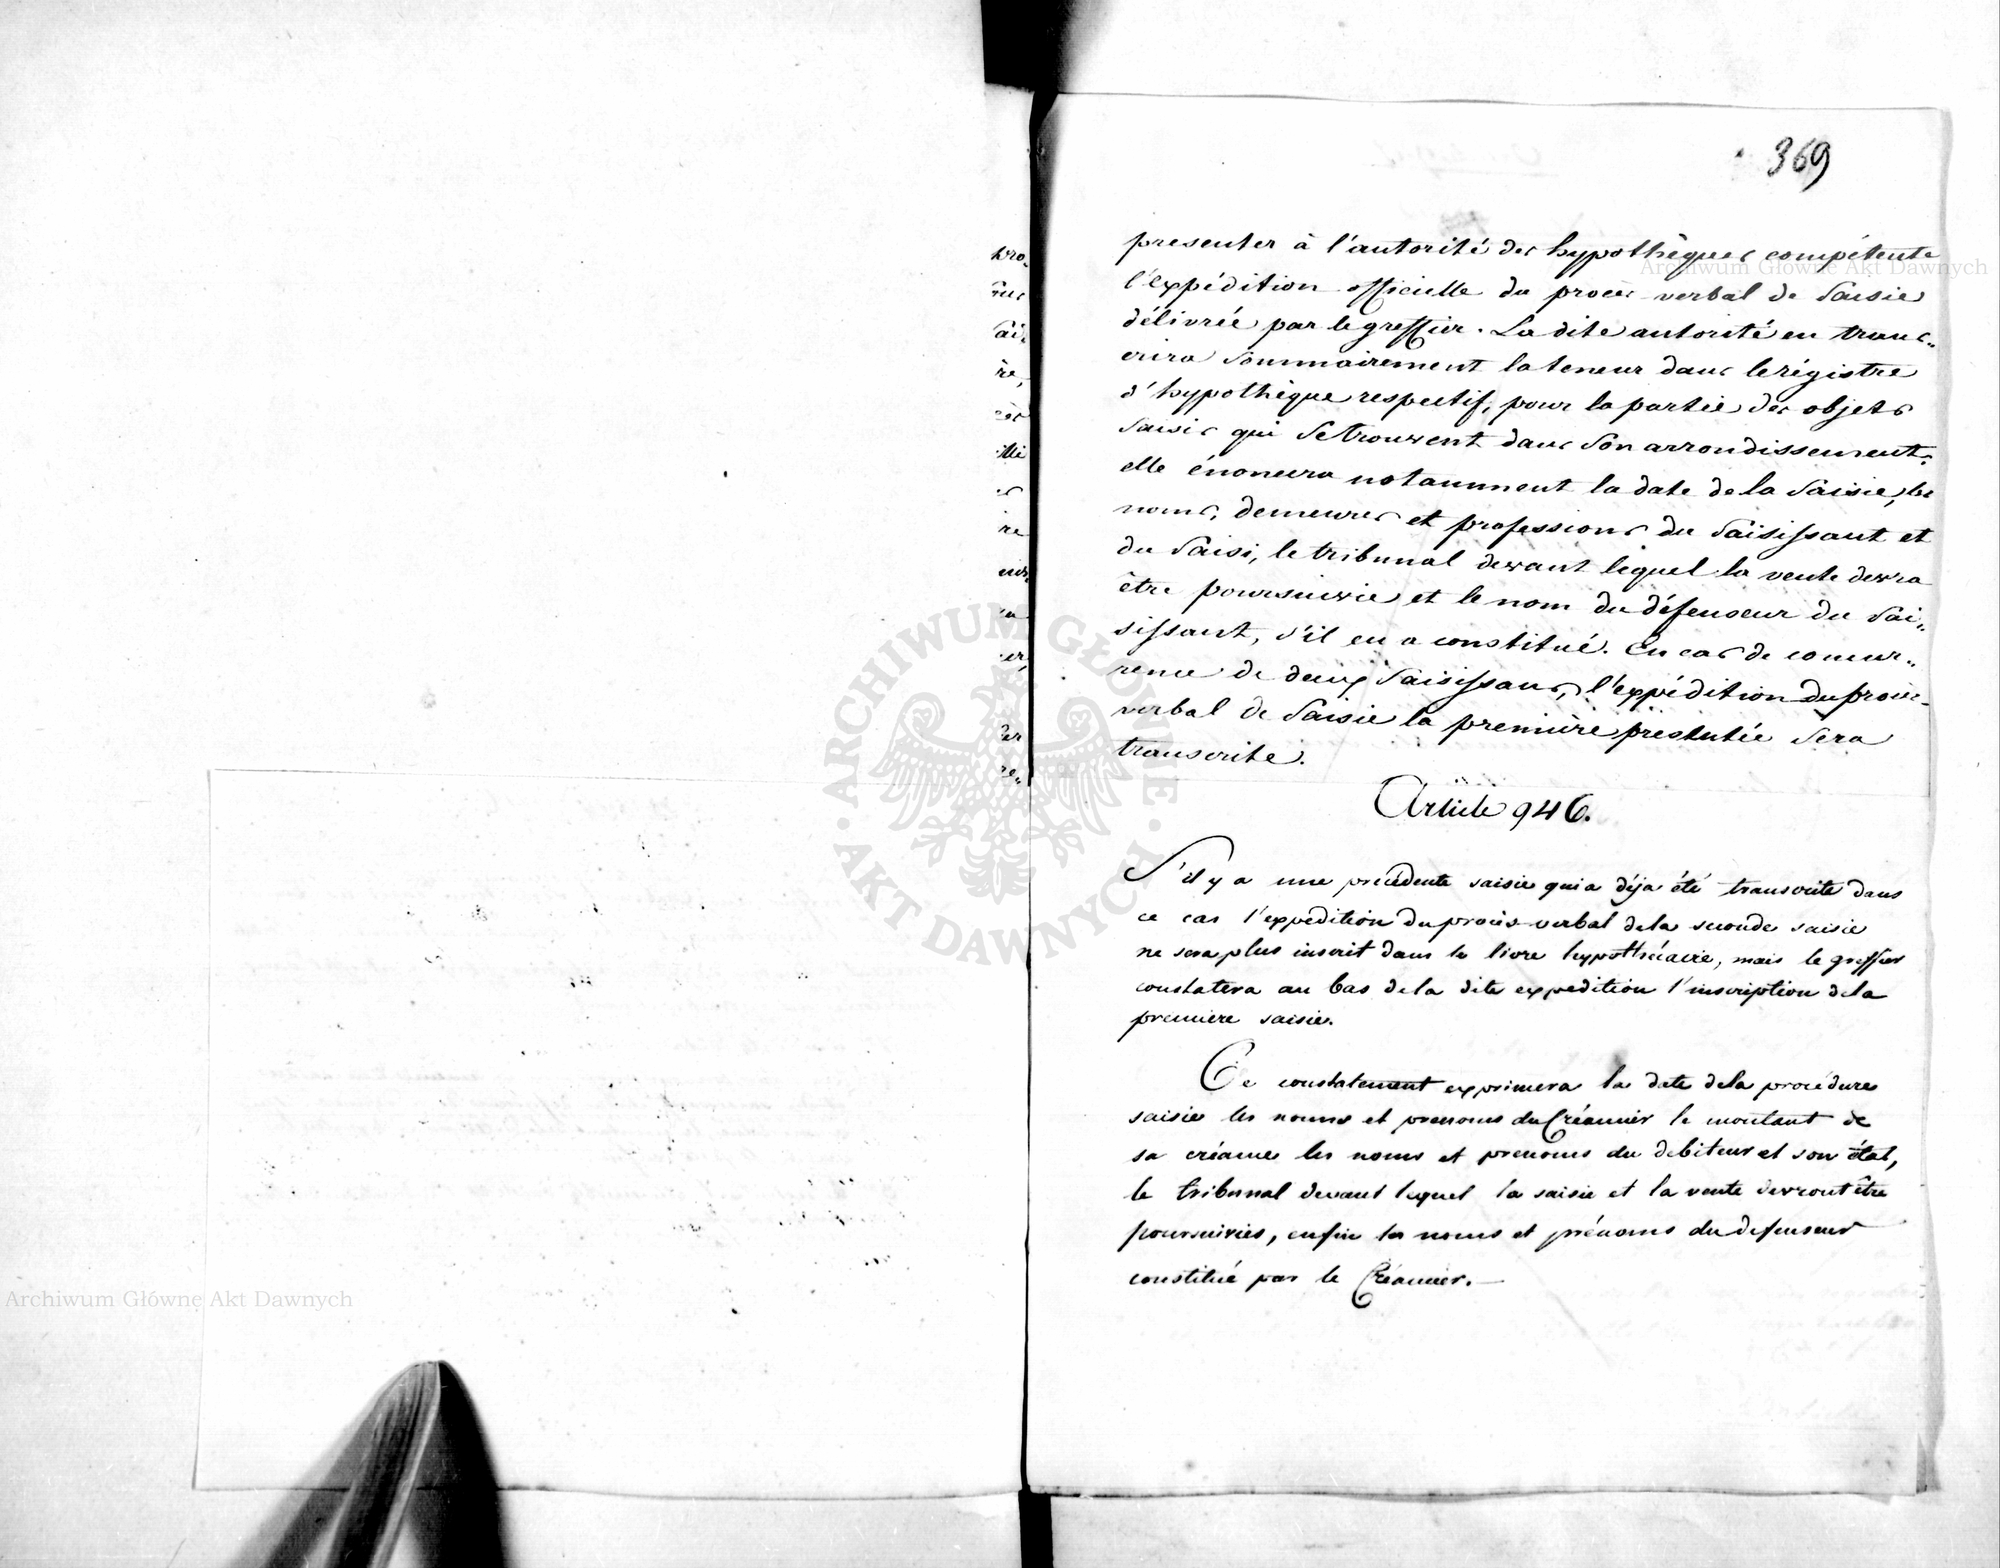 369
presenter à l'autorité des hypothèques compétente
l'expédition officielle du procès verbal de Saisie
délivrée par le greffier. La dite autorité en trans„
crira sommairement la teneur dans le régistre
d'hypothèque respectif, pour la partie des objets
saisis qui se trouvent dans son arrondissement;
elle énoncera notamment la date de la Saisie, les
noms, demeures et professions du Saisissant et
du Saisi, le tribunal devant lequel la vente devra
être poursuivie et le nom du défenseur du Sai„
sissant, s'il en a constitué. En cas de concur„
rence de deux Saisissans, l'expédition du procès
verbal de Saisie la première présentée sera
transcrite.
Article 946.
S'il y a une précédente saisie qui a déja été transcrite dans
ce cas l'expedition du procès-verbal de la seconde saisie
ne sera plus inscrit dans le livre hypothécaire, mais le greffier
constatera au bas de la dite expedition l'inscription de la
premiere saisie.
Ce constatement exprimera la date de la procédure
saisie les noms et prenoms du Créancier le montant de
sa créance les noms et prenoms du debiteur et son état,
le tribunal devant lequel la saisie et la vente devront être
poursuivies, enfin les noms et prénoms du defenseur
constitué par le Créancier.—
Archiwum Główne Akt Dawnych
Archiwum Główne Akt Dawnych
ARCHIWUM GŁÓWNE
AKT DAWNYCH